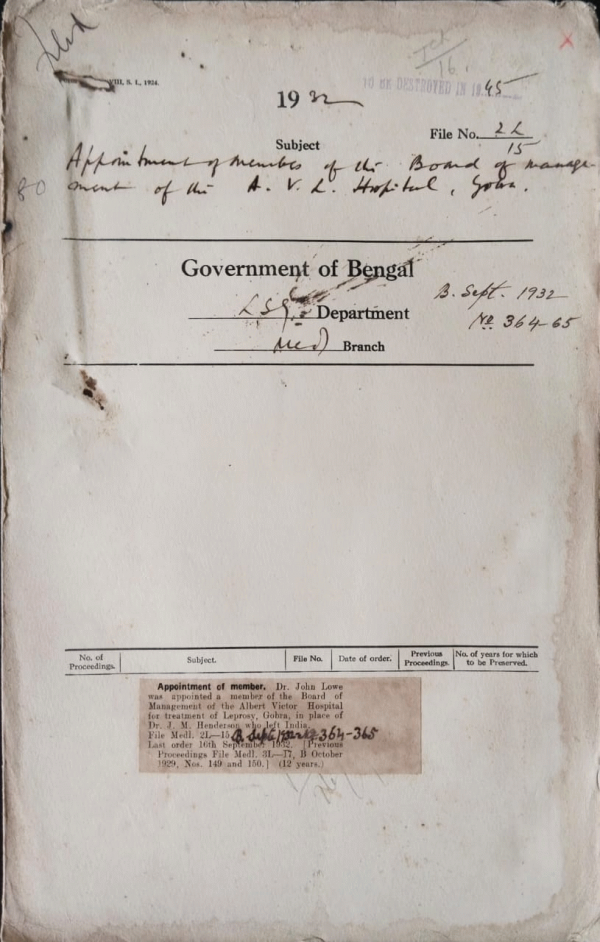 Filed
VIII, S. I., 1924.
16.
TO BE DESTROYED IN 1945
1932
File No. 2L/15
Subject
Appointment of member of the Board of manage-
ment of the A. V. L. Hospital, Gobra.
80
Government of Bengal
L.S.G. Department
B. Sept. 1932
No. 364-65
Med Branch
No. of Proceedings. Subject. File No. Date of order. Previous Proceedings. No. of years for which to be Preserved.
Appointment of member. Dr. John Lowe
was appointed a member of the Board of
Management of the Albert Victor Hospital
for treatment of Leprosy, Gobra, in place of
Dr. J. M. Henderson who left India.
File Medl. 2L—15, B Sept 364-365
Last order 16th September 1932. [Previous
Proceedings File Medl. 3L—17, B October
1929, Nos. 149 and 150.] (12 years.)